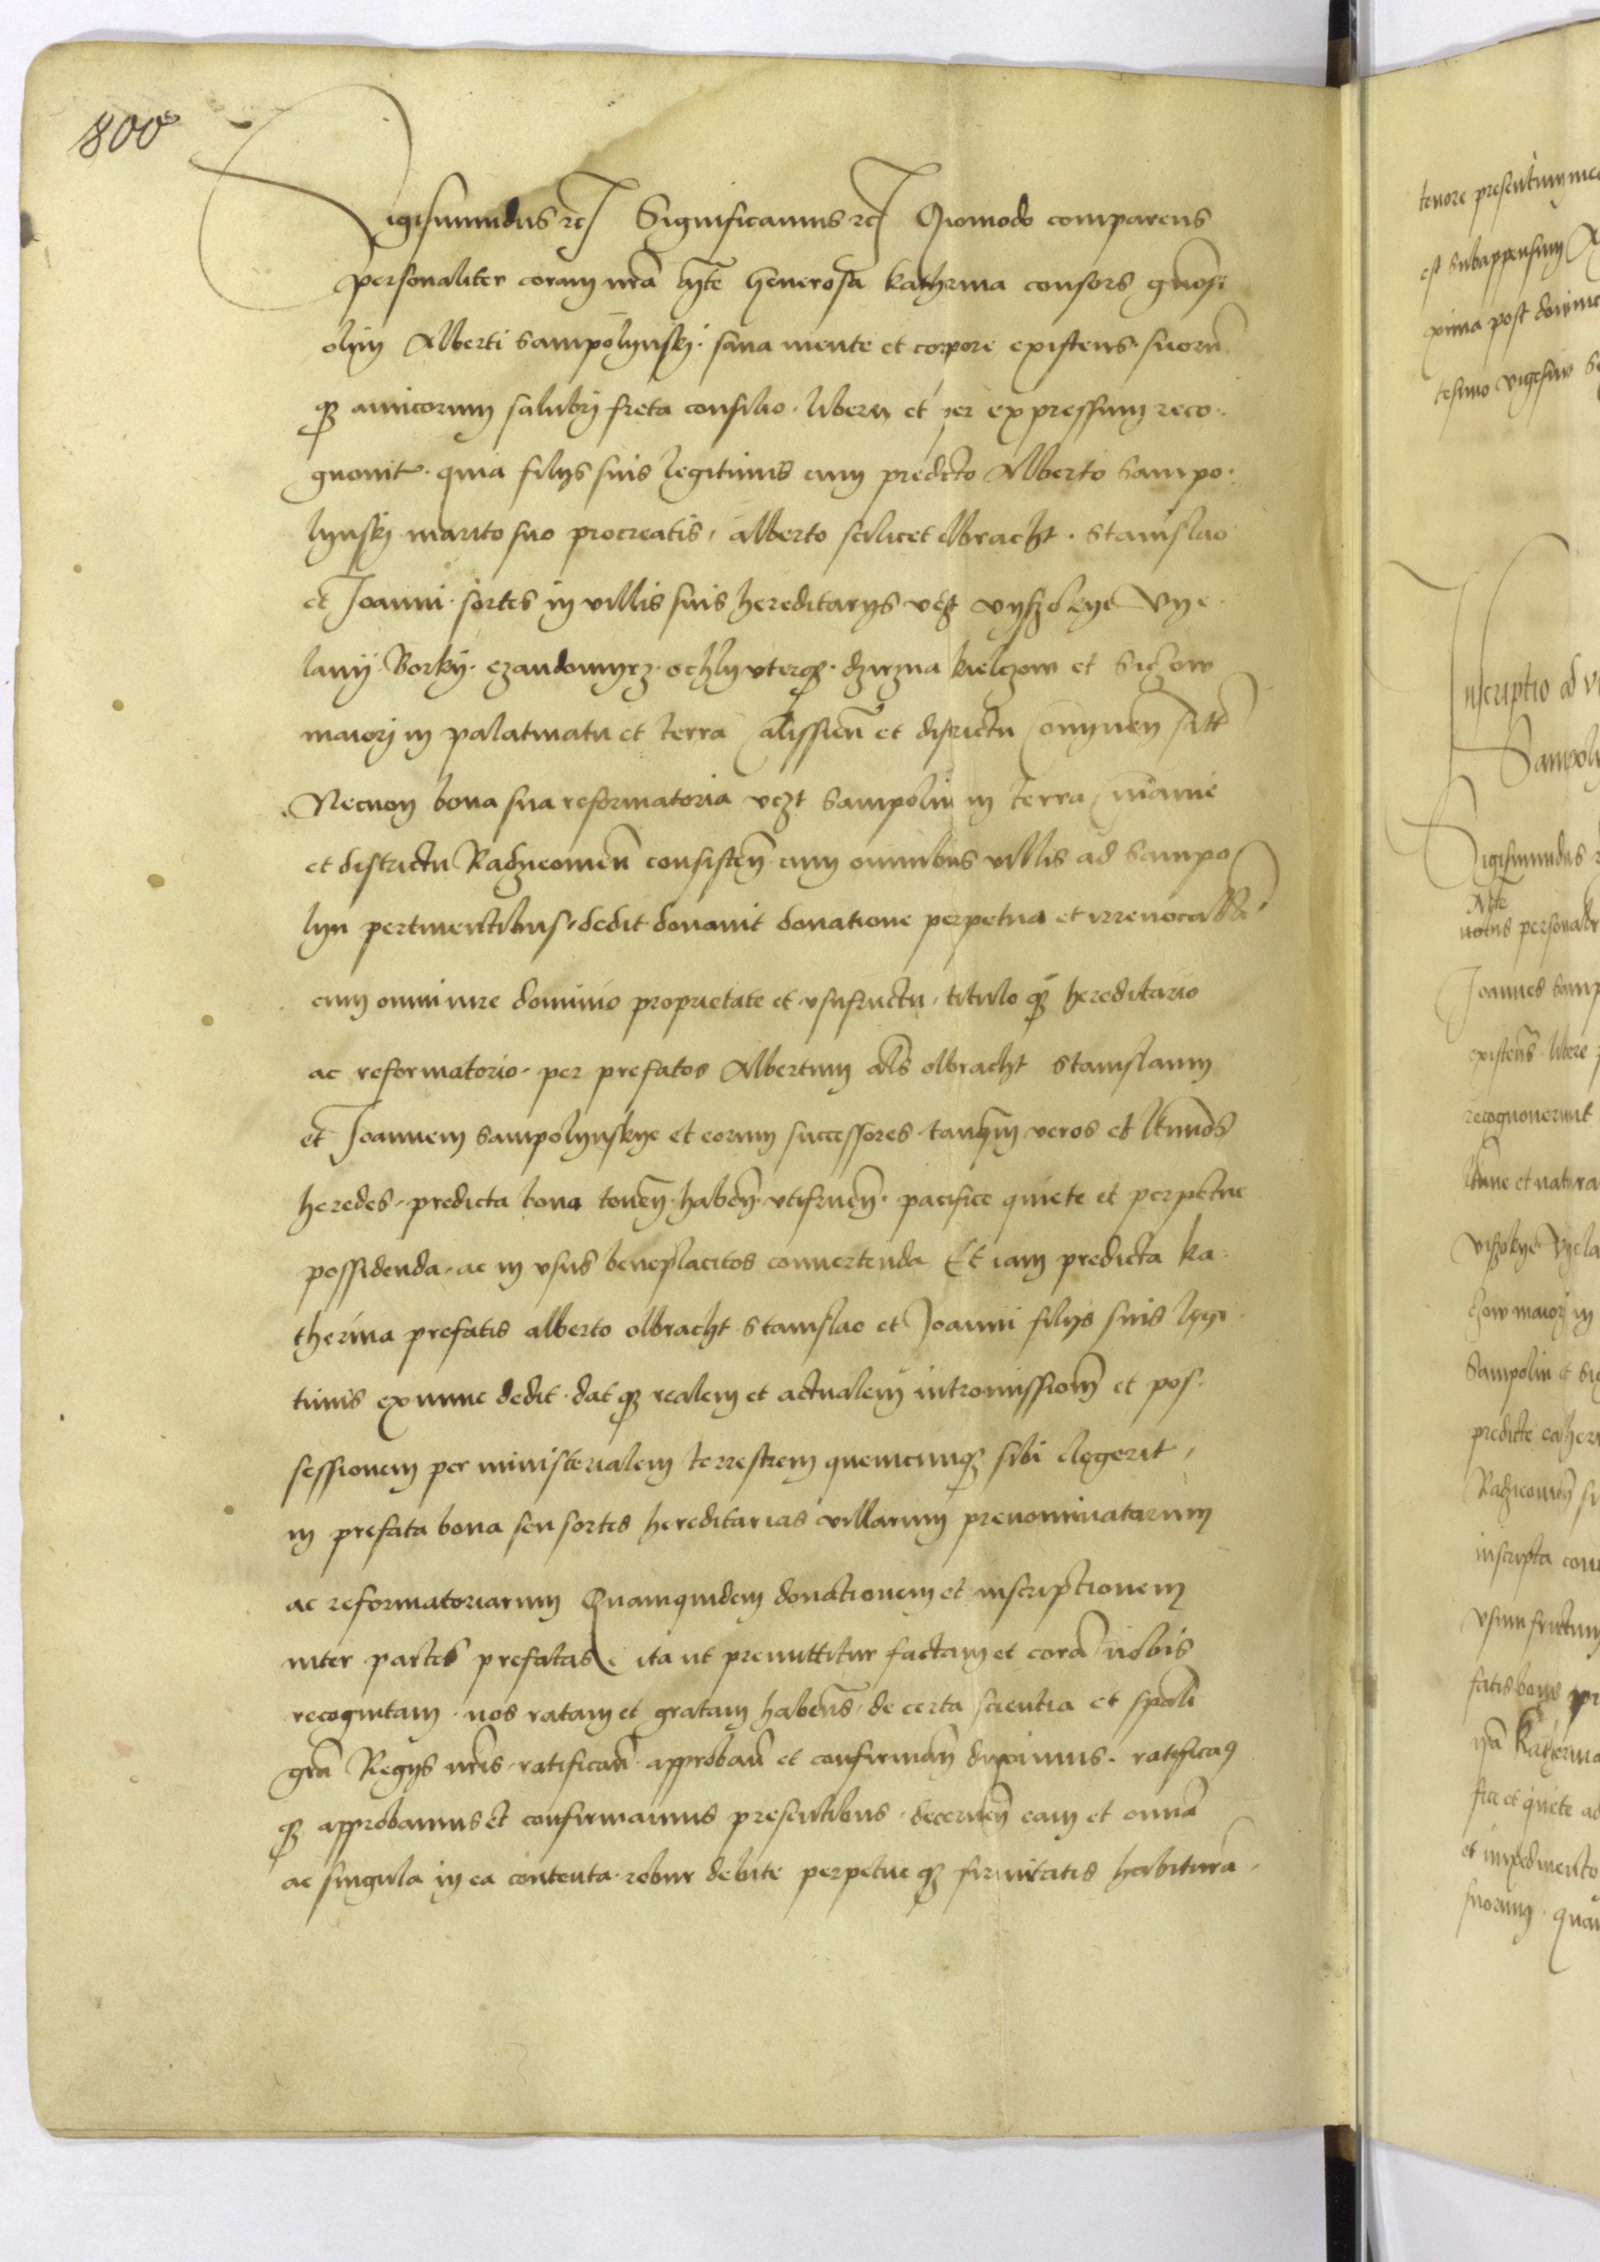 800
Sigismundus rc̄ Significamus rc̄ Quomodo comparens
personaliter coram nr̄a Mte Generosa Katherina consors gn̄osi
olim Alberti Sampolynskj. sana mente et corpore existens. suorū
q̄ amicorum salubrj freta consilio. libere et per expressum reco-
gnouit. quia filys suis legitimis cum predicto Alberto Sampo-
lynskj marito suo procreatis, alberto scilicet olbracht. Stanislao
et Joanni. sortes in villis suis hereditarys vcz vyszokye Vye-
lany. Borky. czandomyrz. ochly vterq̄. dzirzna kielczow et Siczow
maiorj in palatinatu et terra Calissien̄ et districtu Conynen̄ sitt̄
Necnon bona sua reformatoria vczt Sampolin in terra Cuiauie
et districtu Radzieouien̄ consisten̄ cum omnibus villis ad Sampo
lyn pertinentibus, dedit donauit donatione perpetua et irreuocabili
cum omni iure dominio proprietate et vsufructu, titulo q̄ hereditario
ac reformatorio. per prefatos Albertum als olbracht Stanislaum
et Joannem Sampolynskye et eorum successores. tanq̄m veros et ltimos
heredes. predicta bona tenen̄. haben̄. vtifruen̄. pacifice quiete et perpetue
possidenda. ac in vsus beneplacitos conuertenda Et iam predicta ka-
therina prefatis alberto olbracht Stanislao et Joanni filys suis legi-
timis ex nunc dedit. dat q̄ realem et actualem intromissionē et pos-
sessionem per ministerialem terrestrem quemcunq̄ sibi elegerit,
in prefata bona seu sortes hereditarias villarum prenominatarum
ac reformatoriarum Quamquidem donationem et inscriptionem
inter partes prefatas ita ut premittitur factam et corā nobis
recognitam. nos ratam et gratam habens. de certa scientia et spāli
grā Regys nr̄is. ratifican̄. approban̄ et confirman̄ duximus. ratifica9
q̄ approbamus et confirmamus presentibus. decernen̄ eam et omnia
ac singula in ea contenta. robur debite perpetue q̄ firmitatis habitura.
tenore presentium me
est subappensum
xima post domini
tesimo vigesimo
Inscriptio ad
Sampoly
Sigismundus
Mte
notus personalr
Joannes Samp
existens. libere
recognouerunt
ltime et natura
viszokye Vyela
chow maiorj in
Sampolin et
predicte cather
Radzieouien̄
inscripta con
vsumfructum
fatis bonis pr
Katherina
fice et quiete ad
et impedimento
suorum. quam